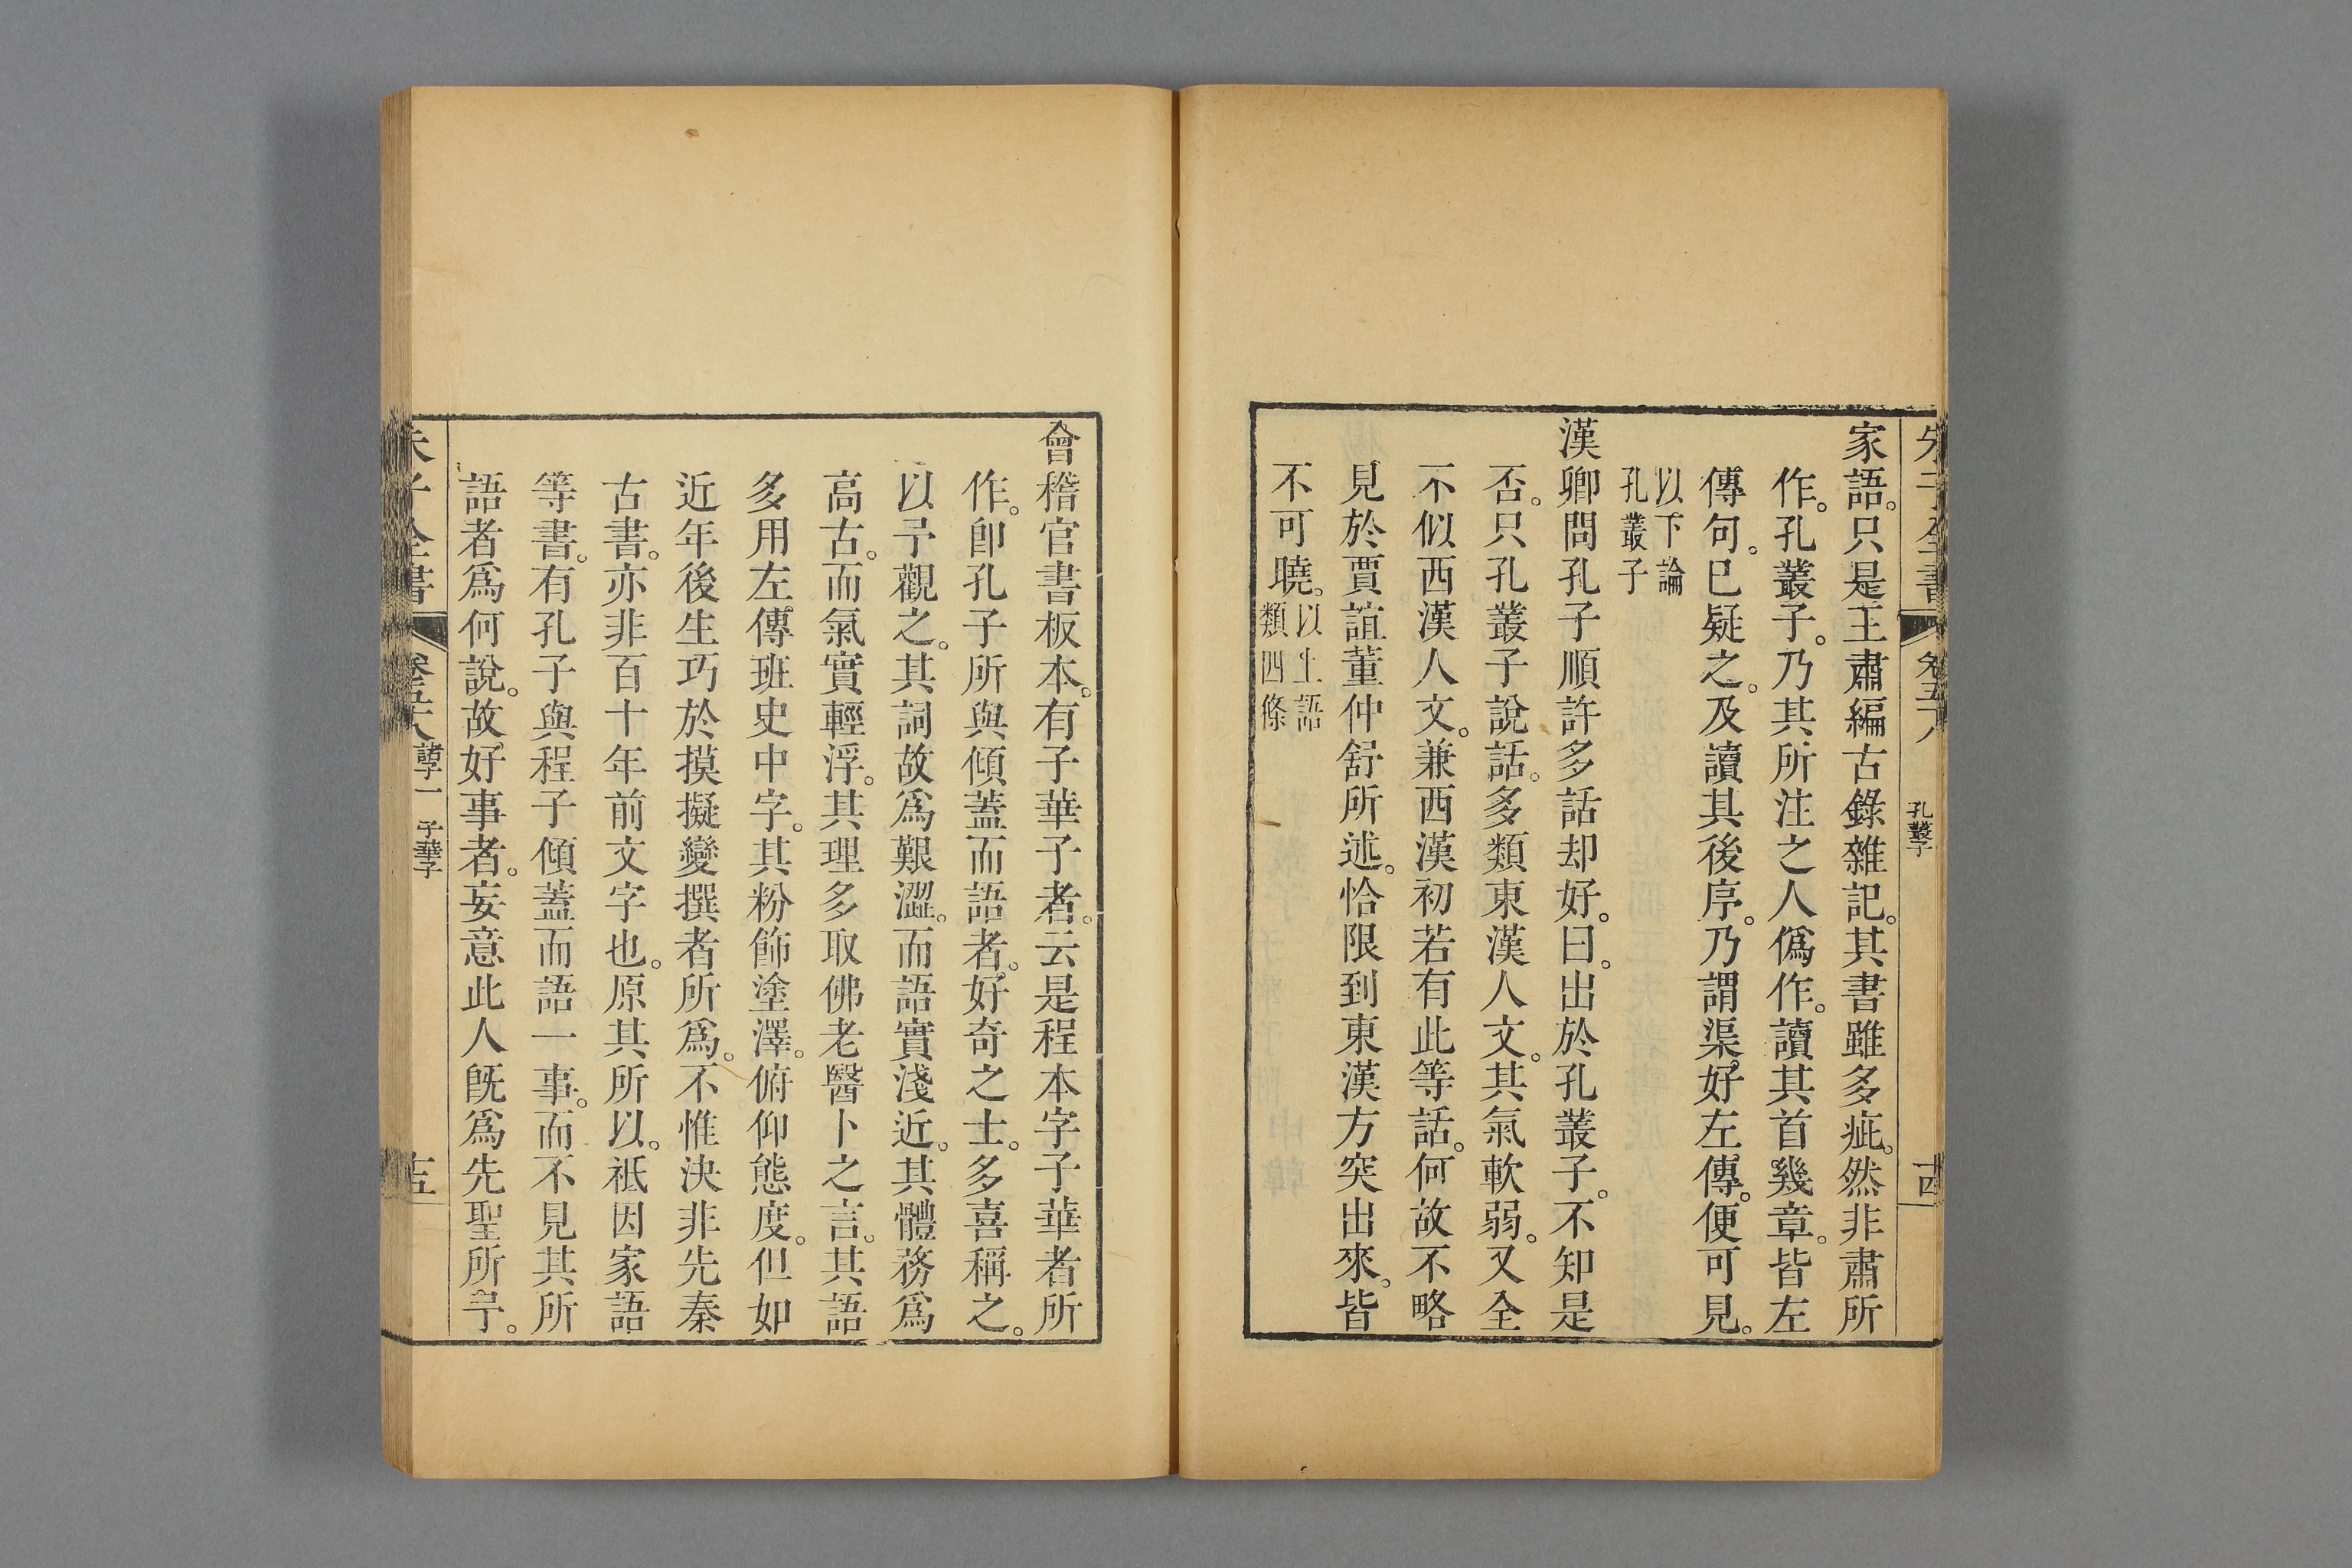 朱子全書 卷五十八 孔叢子 十四
家語。只是王肅編古錄雜記。其書雖多疵。然非肅所
作。孔叢子。乃其所注之人僞作。讀其首幾章。皆左
傳句。已疑之。及讀其後序。乃謂渠好左傳。便可見。
以下論
孔叢子
漢卿問孔子順許多話却好。曰。出於孔叢子。不知是
否。只孔叢子說話。多類東漢人文。其氣軟弱。又全
不似西漢人文。兼西漢初若有此等話。何故不略
見於賈誼董仲舒所述。恰限到東漢方突出來。皆
不可曉。以上語
類四條
會稽官書板本。有子華子者。云是程本字子華者所
作。卽孔子所與傾蓋而語者。好奇之士。多喜稱之。
以予觀之。其詞故爲艱澀。而語實淺近。其體務爲
高古。而氣實輕浮。其理多取佛老醫卜之言。其語
多用左傳班史中字。其粉飾塗澤。俯仰態度。但如
近年後生巧於摸擬變撰者所爲。不惟決非先秦
古書。亦非百十年前文字也。原其所以。祇因家語
等書。有孔子與程子傾蓋而語一事。而不見其所
語者爲何說。故好事者。妄意此人旣爲先聖所予。
朱子全書 卷五十八 諸子一 子華子 十五